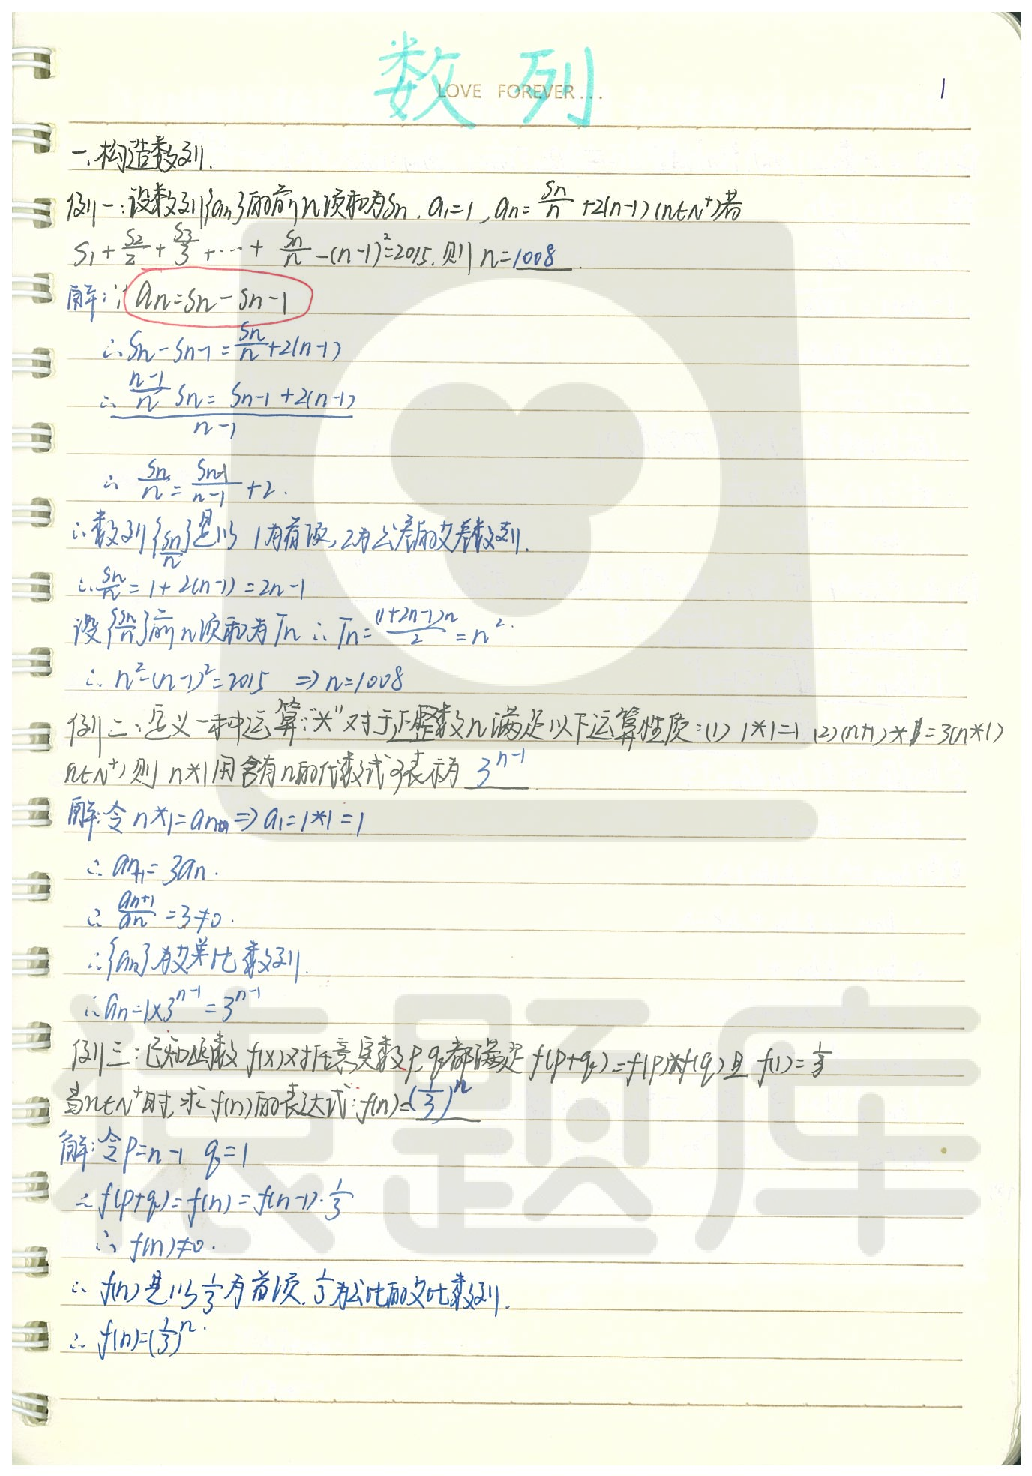 数列
LOVE FOREVER...
1
一、构造数列.
例一:设数列{an}的前n项和为Sn, a1=1, an=Sn/n+2(n-1)(n∈N+)若
S1+S2/2+S3/3+…+Sn/n-(n-1)²=2015.则n=1008
解:∵an=Sn-Sn-1
∴Sn-Sn-1=Sn/n+2(n-1)
∴ n-1/n Sn= Sn-1+2(n-1)
n-1
∴ Sn/n=Sn-1/n-1+2.
∴数列{Sn/n}是以1为首项,2为公差的等差数列.
∴Sn/n=1+2(n-1)=2n-1
设{Sn/n}前n项和为Tn ∴Tn=(1+2n-1)n/2=n².
∴n²-(n-1)²=2015 ⇒n=1008
例二:定义一种运算:"*"对于正整数n满足以下运算性质:(1) 1*1=1 (2)(n+1)*1=3(n*1)
n∈N+)则n*1用含有n的代数式可表示为 3^{n-1}
解:令n*1=an⇒a1=1*1=1
∴an+1=3an.
∴an+1/an=3≠0.
∴{an}为等比数列
∴an=1×3^{n-1}=3^{n-1}
例三:已知函数f(x)对任意实数p,q都满足f(p+q)=f(p)*f(q)且f(1)=1/3
当n∈N+时,求f(n)的表达式:f(n)=(1/3)^n
解:令p=n-1 q=1
∴f(p+q)=f(n)=f(n-1)·1/3
∴f(n)≠0.
∴f(n)是以1/3为首项,1/3为公比的等比数列.
∴f(n)=(1/3)^n.
猿题库